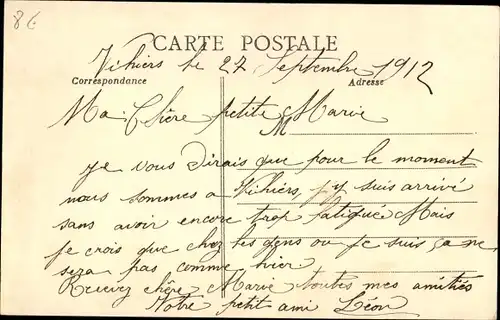 8€
CARTE POSTALE
Vihiers le 27 Septembre 1912
Correspondance
Adresse
Ma Chère petite Marie
M
Je vous dirais que pour le moment
nous sommes a Vihiers, j'y suis arrivé
sans avoir encore trop fatigué Mais
je crois que chez les gens ou je suis ça ne
sera pas comme hier
Recevez chère Marie toutes mes amitiés
Votre petit ami Léon